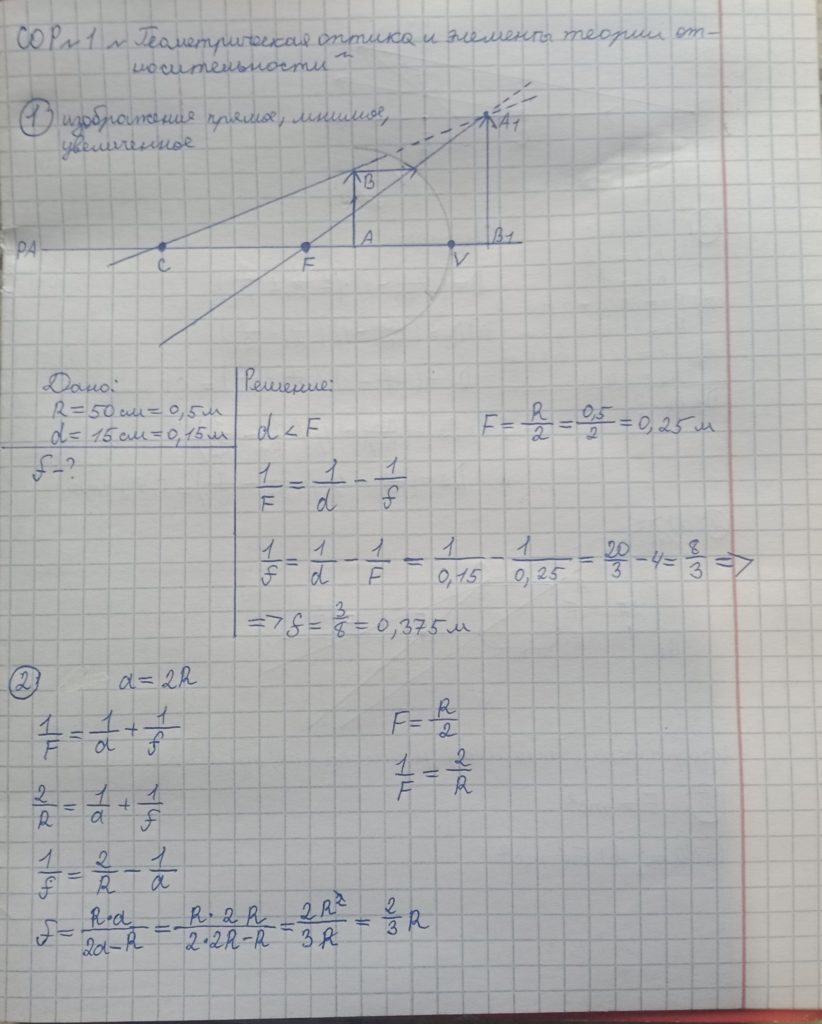 СОР №1 „Геометрическая оптика и элементы теории от-
носительности“
1) изображение прямое, мнимое,
увеличенное
A1
B
РА
C
F
A
V
B1
Дано:
R = 50 см = 0,5 м
d = 15 см = 0,15 м
f - ?
Решение:
d < F
F = R/2 = 0,5/2 = 0,25 м
1/F = 1/d - 1/f
1/f = 1/d - 1/F = 1/0,15 - 1/0,25 = 20/3 - 4 = 8/3 =>
=> f = 3/8 = 0,375 м
2) d = 2R
1/F = 1/d + 1/f
F = R/2
1/F = 2/R
2/R = 1/d + 1/f
1/f = 2/R - 1/d
f = R·d/2d-R = R·2R/2·2R-R = 2R²/3R = 2/3 R